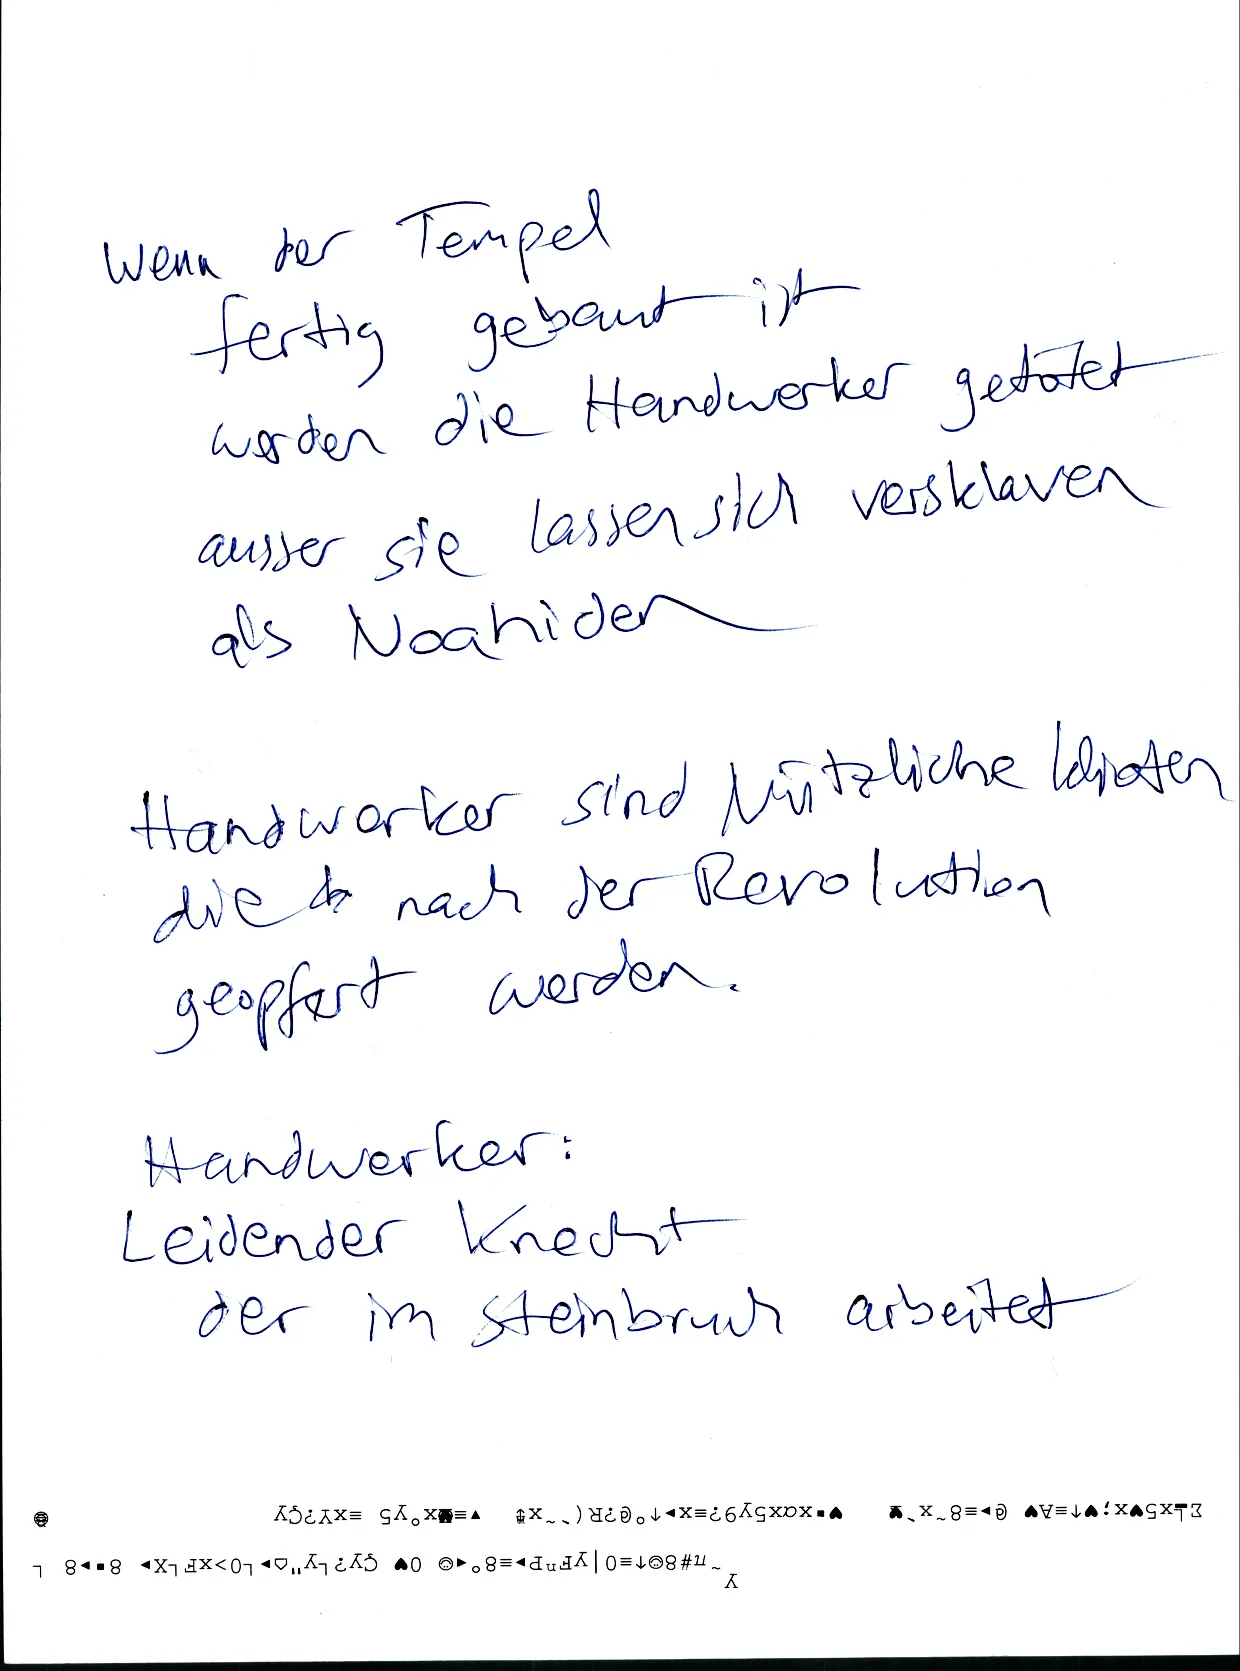 Wenn der Tempel
fertig gebaut ist
werden die Handwerker getötet
ausser sie lassen sich versklaven
als Noahiden
Handwerker sind Nützliche Idioten
die nach der Revolution
geopfert werden.
Handwerker:
Leidender Knecht
der im Steinbruch arbeitet